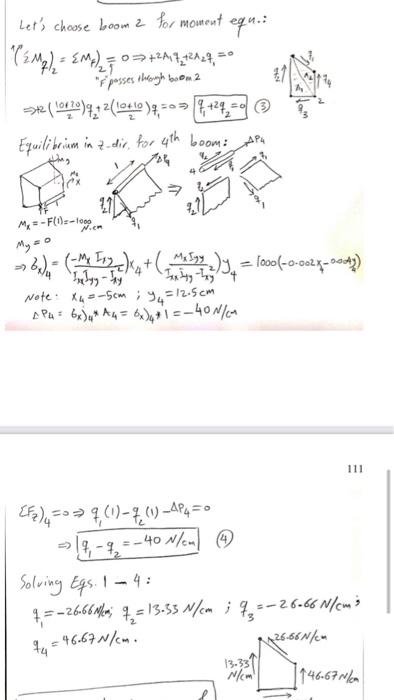 Let's choose boom 2 for moment equ.:
(ΣM_q)_2 = ΣM_F)_2 = 0 ⇒ +2A_1q_2+2A_2q_1=0
"F" passes through boom 2
⇒ +2(10*20/2)q_2+2(10*10/2)q_1=0 ⇒ q_1+2q_2=0 ③
q_2 q_1 A_1 A_2 q_4 q_3 2
Equilibrium in z-dir. for 4th boom:
ΔP_4
1 ΔP_4 ⇒ 4 q_2 q_1
M_x=-F(1)=-1000 N.cm
M_y=0
⇒ σ_z)_4=(-M_x I_xy/I_xx I_yy-I_xy^2)x_4+(M_x I_yy/I_xx I_yy-I_xy^2)y_4=1000(-0.002x_4-0.004y_4)
Note: x_4=-5cm ; y_4=12.5cm
ΔP_4= σ_z)_4*A_4= σ_z)_4*1=-40 N/cm
111
ΣF_z)_4=0 ⇒ q_1(1)-q_2(1)-ΔP_4=0
⇒ q_1-q_2=-40 N/cm ④
Solving Eqs. 1 – 4:
q_1=-26.66 N/cm; q_2=13.33 N/cm ; q_3=-26.66 N/cm;
q_4=46.67 N/cm.
26.66 N/cm
13.33 N/cm
46.67 N/cm